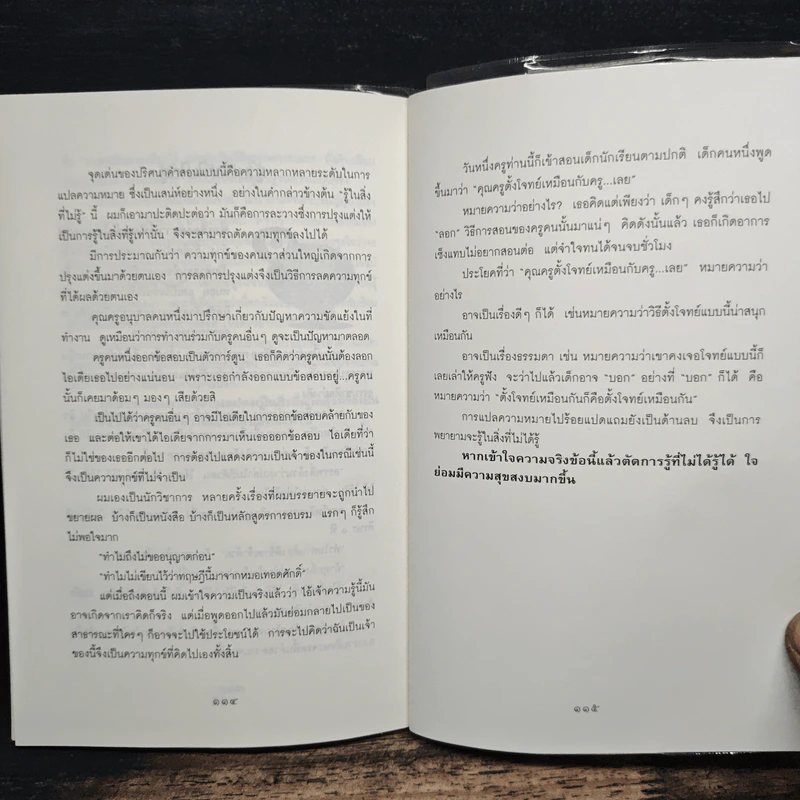 จุดเด่นของปริศนาคำสอนแบบนี้คือความหลากหลายระดับในการ
แปลความหมาย ซึ่งเป็นเสน่ห์อย่างหนึ่ง อย่างในคำกล่าวข้างต้น "รู้ในสิ่ง
ที่ไม่รู้" นี้ ผมก็เอามาปะติดปะต่อว่า มันก็คือการละวางซึ่งการปรุงแต่งให้
เป็นการรู้ในสิ่งที่รู้เท่านั้น จึงจะสามารถตัดความทุกข์ลงไปได้
มีการประมาณกันว่า ความทุกข์ของคนเราส่วนใหญ่เกิดจากการ
ปรุงแต่งขึ้นมาด้วยตนเอง การลดการปรุงแต่งจึงเป็นวิธีการลดความทุกข์
ที่ได้ผลด้วยตนเอง
คุณครูอนุบาลคนหนึ่งมาปรึกษาเกี่ยวกับปัญหาความขัดแย้งในที่
ทำงาน ดูเหมือนว่าการทำงานร่วมกับครูคนอื่นๆ ดูจะเป็นปัญหามาตลอด
ครูคนหนึ่งออกข้อสอบเป็นตัวการ์ตูน เธอก็คิดว่าครูคนนั้นต้องลอก
ไอเดียเธอไปอย่างแน่นอน เพราะเธอกำลังออกแบบข้อสอบอยู่...ครูคน
นั้นก็เคยมาด้อมๆ มองๆ เสียด้วยสิ
เป็นไปได้ว่าครูคนอื่นๆ อาจมีไอเดียในการออกข้อสอบคล้ายกับของ
เธอ และต่อให้เขาได้ไอเดียจากการมาเห็นเธอออกข้อสอบ ไอเดียที่ว่า
ก็ไม่ใช่ของเธออีกต่อไป การต้องไปแสดงความเป็นเจ้าของในกรณีเช่นนี้
จึงเป็นความทุกข์ที่ไม่จำเป็น
ผมเองเป็นนักวิชาการ หลายครั้งเรื่องที่ผมบรรยายจะถูกนำไป
ขยายผล บ้างก็เป็นหนังสือ บ้างก็เป็นหลักสูตรการอบรม แรกๆ ก็รู้สึก
ไม่พอใจมาก
"ทำไมถึงไม่ขออนุญาตก่อน"
"ทำไมไม่เขียนไว้ว่าทฤษฎีนี้มาจากหมอเทอดศักดิ์"
แต่เมื่อถึงตอนนี้ ผมเข้าใจความเป็นจริงแล้วว่า ไอ้เจ้าความรู้นี้มัน
อาจเกิดจากเราคิดก็จริง แต่เมื่อพูดออกไปแล้วมันย่อมกลายไปเป็นของ
สาธารณะที่ใครๆ ก็อาจจะไปใช้ประโยชน์ได้ การจะไปคิดว่าฉันเป็นเจ้า
ของนี้จึงเป็นความทุกข์ที่คิดไปเองทั้งสิ้น
๑๑๔
วันหนึ่งครูท่านนี้ก็เข้าสอนเด็กนักเรียนตามปกติ เด็กคนหนึ่งพูด
ขึ้นมาว่า "คุณครูตั้งโจทย์เหมือนกับครู...เลย"
หมายความว่าอย่างไร? เธอคิดแต่เพียงว่า เด็กๆ คงรู้สึกว่าเธอไป
"ลอก" วิธีการสอนของครูคนนั้นมาแน่ๆ คิดดังนั้นแล้ว เธอก็เกิดอาการ
เซ็งแทบไม่อยากสอนต่อ แต่จำใจทนได้จนจบชั่วโมง
ประโยคที่ว่า "คุณครูตั้งโจทย์เหมือนกับครู...เลย" หมายความว่า
อย่างไร
อาจเป็นเรื่องดีๆ ก็ได้ เช่นหมายความว่าวิธีตั้งโจทย์แบบนี้น่าสนุก
เหมือนกัน
อาจเป็นเรื่องธรรมดา เช่น หมายความว่าเขาคงเจอโจทย์แบบนี้ก็
เลยเล่าให้ครูฟัง จะว่าไปแล้วเด็กอาจ "บอก" อย่างที่ "บอก" ก็ได้ คือ
หมายความว่า "ตั้งโจทย์เหมือนกันก็คือตั้งโจทย์เหมือนกัน"
การแปลความหมายไปร้อยแปดแถมยังเป็นด้านลบ จึงเป็นการ
พยายามจะรู้ในสิ่งที่ไม่ได้รู้
หากเข้าใจความจริงข้อนี้แล้วตัดการรู้ที่ไม่ได้รู้ได้ ใจ
ย่อมมีความสุขสงบมากขึ้น
๑๑๕